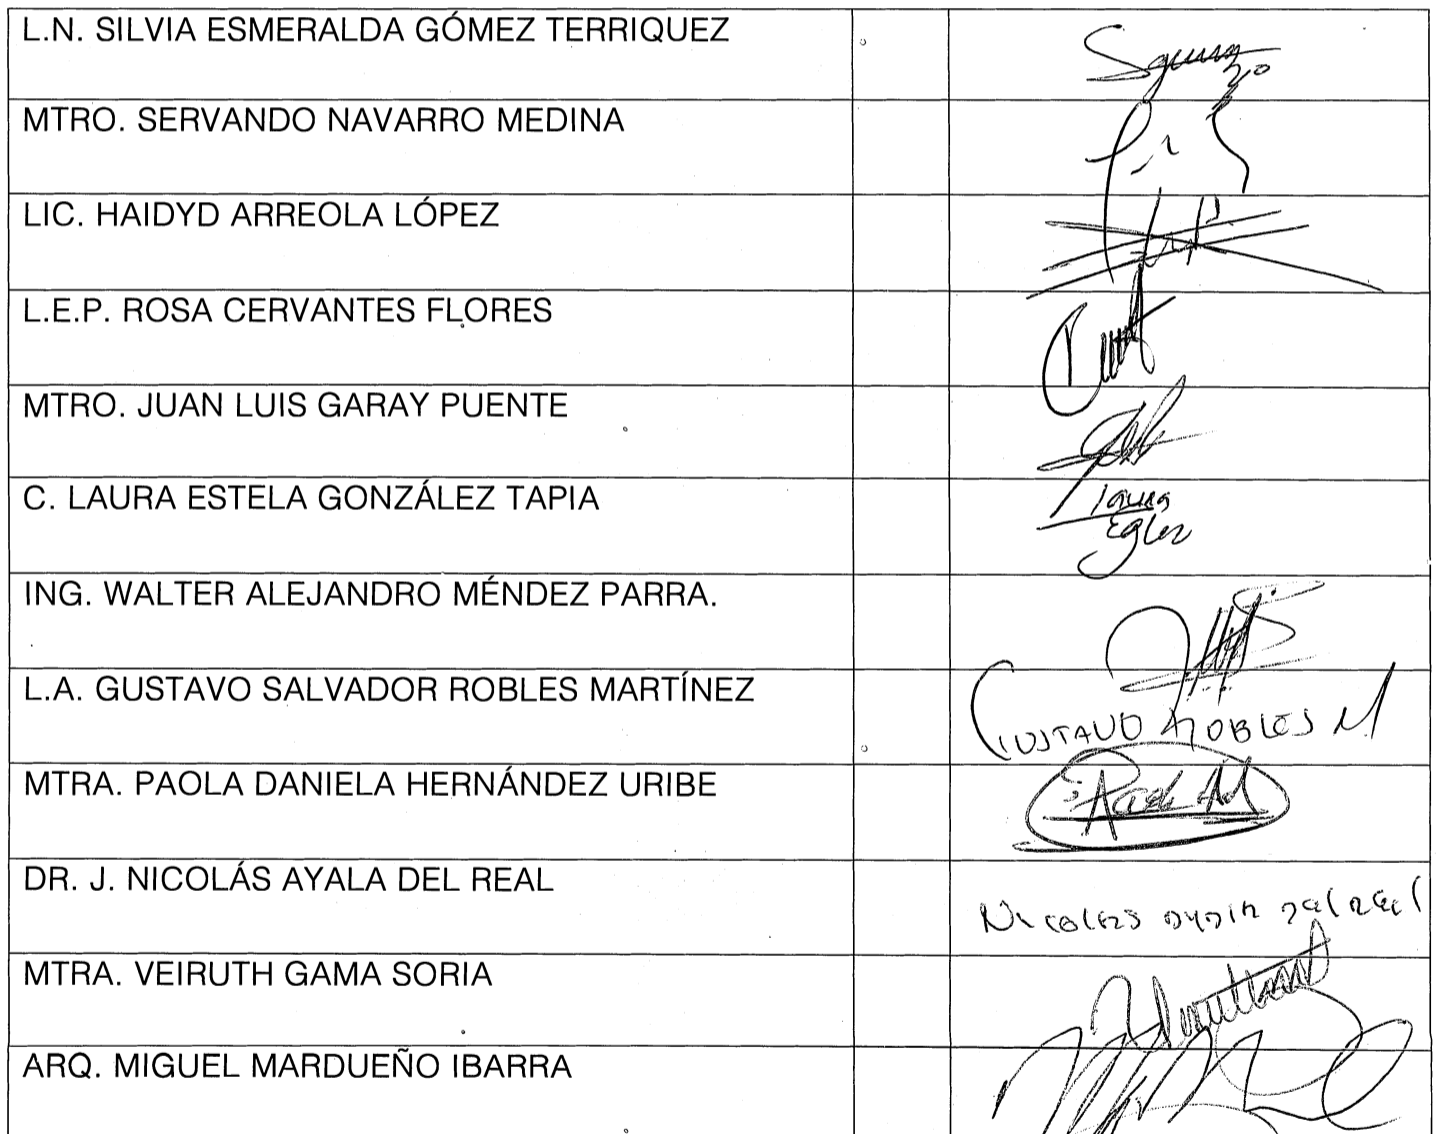 L.N. SILVIA ESMERALDA GÓMEZ TERRIQUEZ
MTRO. SERVANDO NAVARRO MEDINA
LIC. HAIDYD ARREOLA LÓPEZ
L.E.P. ROSA CERVANTES FLORES
MTRO. JUAN LUIS GARAY PUENTE
C. LAURA ESTELA GONZÁLEZ TAPIA
Laura
ING. WALTER ALEJANDRO MÉNDEZ PARRA.
L.A. GUSTAVO SALVADOR ROBLES MARTÍNEZ
GUSTAVO ROBLES M
MTRA. PAOLA DANIELA HERNÁNDEZ URIBE
DR. J. NICOLÁS AYALA DEL REAL
Nicolas ayala del real
MTRA. VEIRUTH GAMA SORIA
ARQ. MIGUEL MARDUEÑO IBARRA